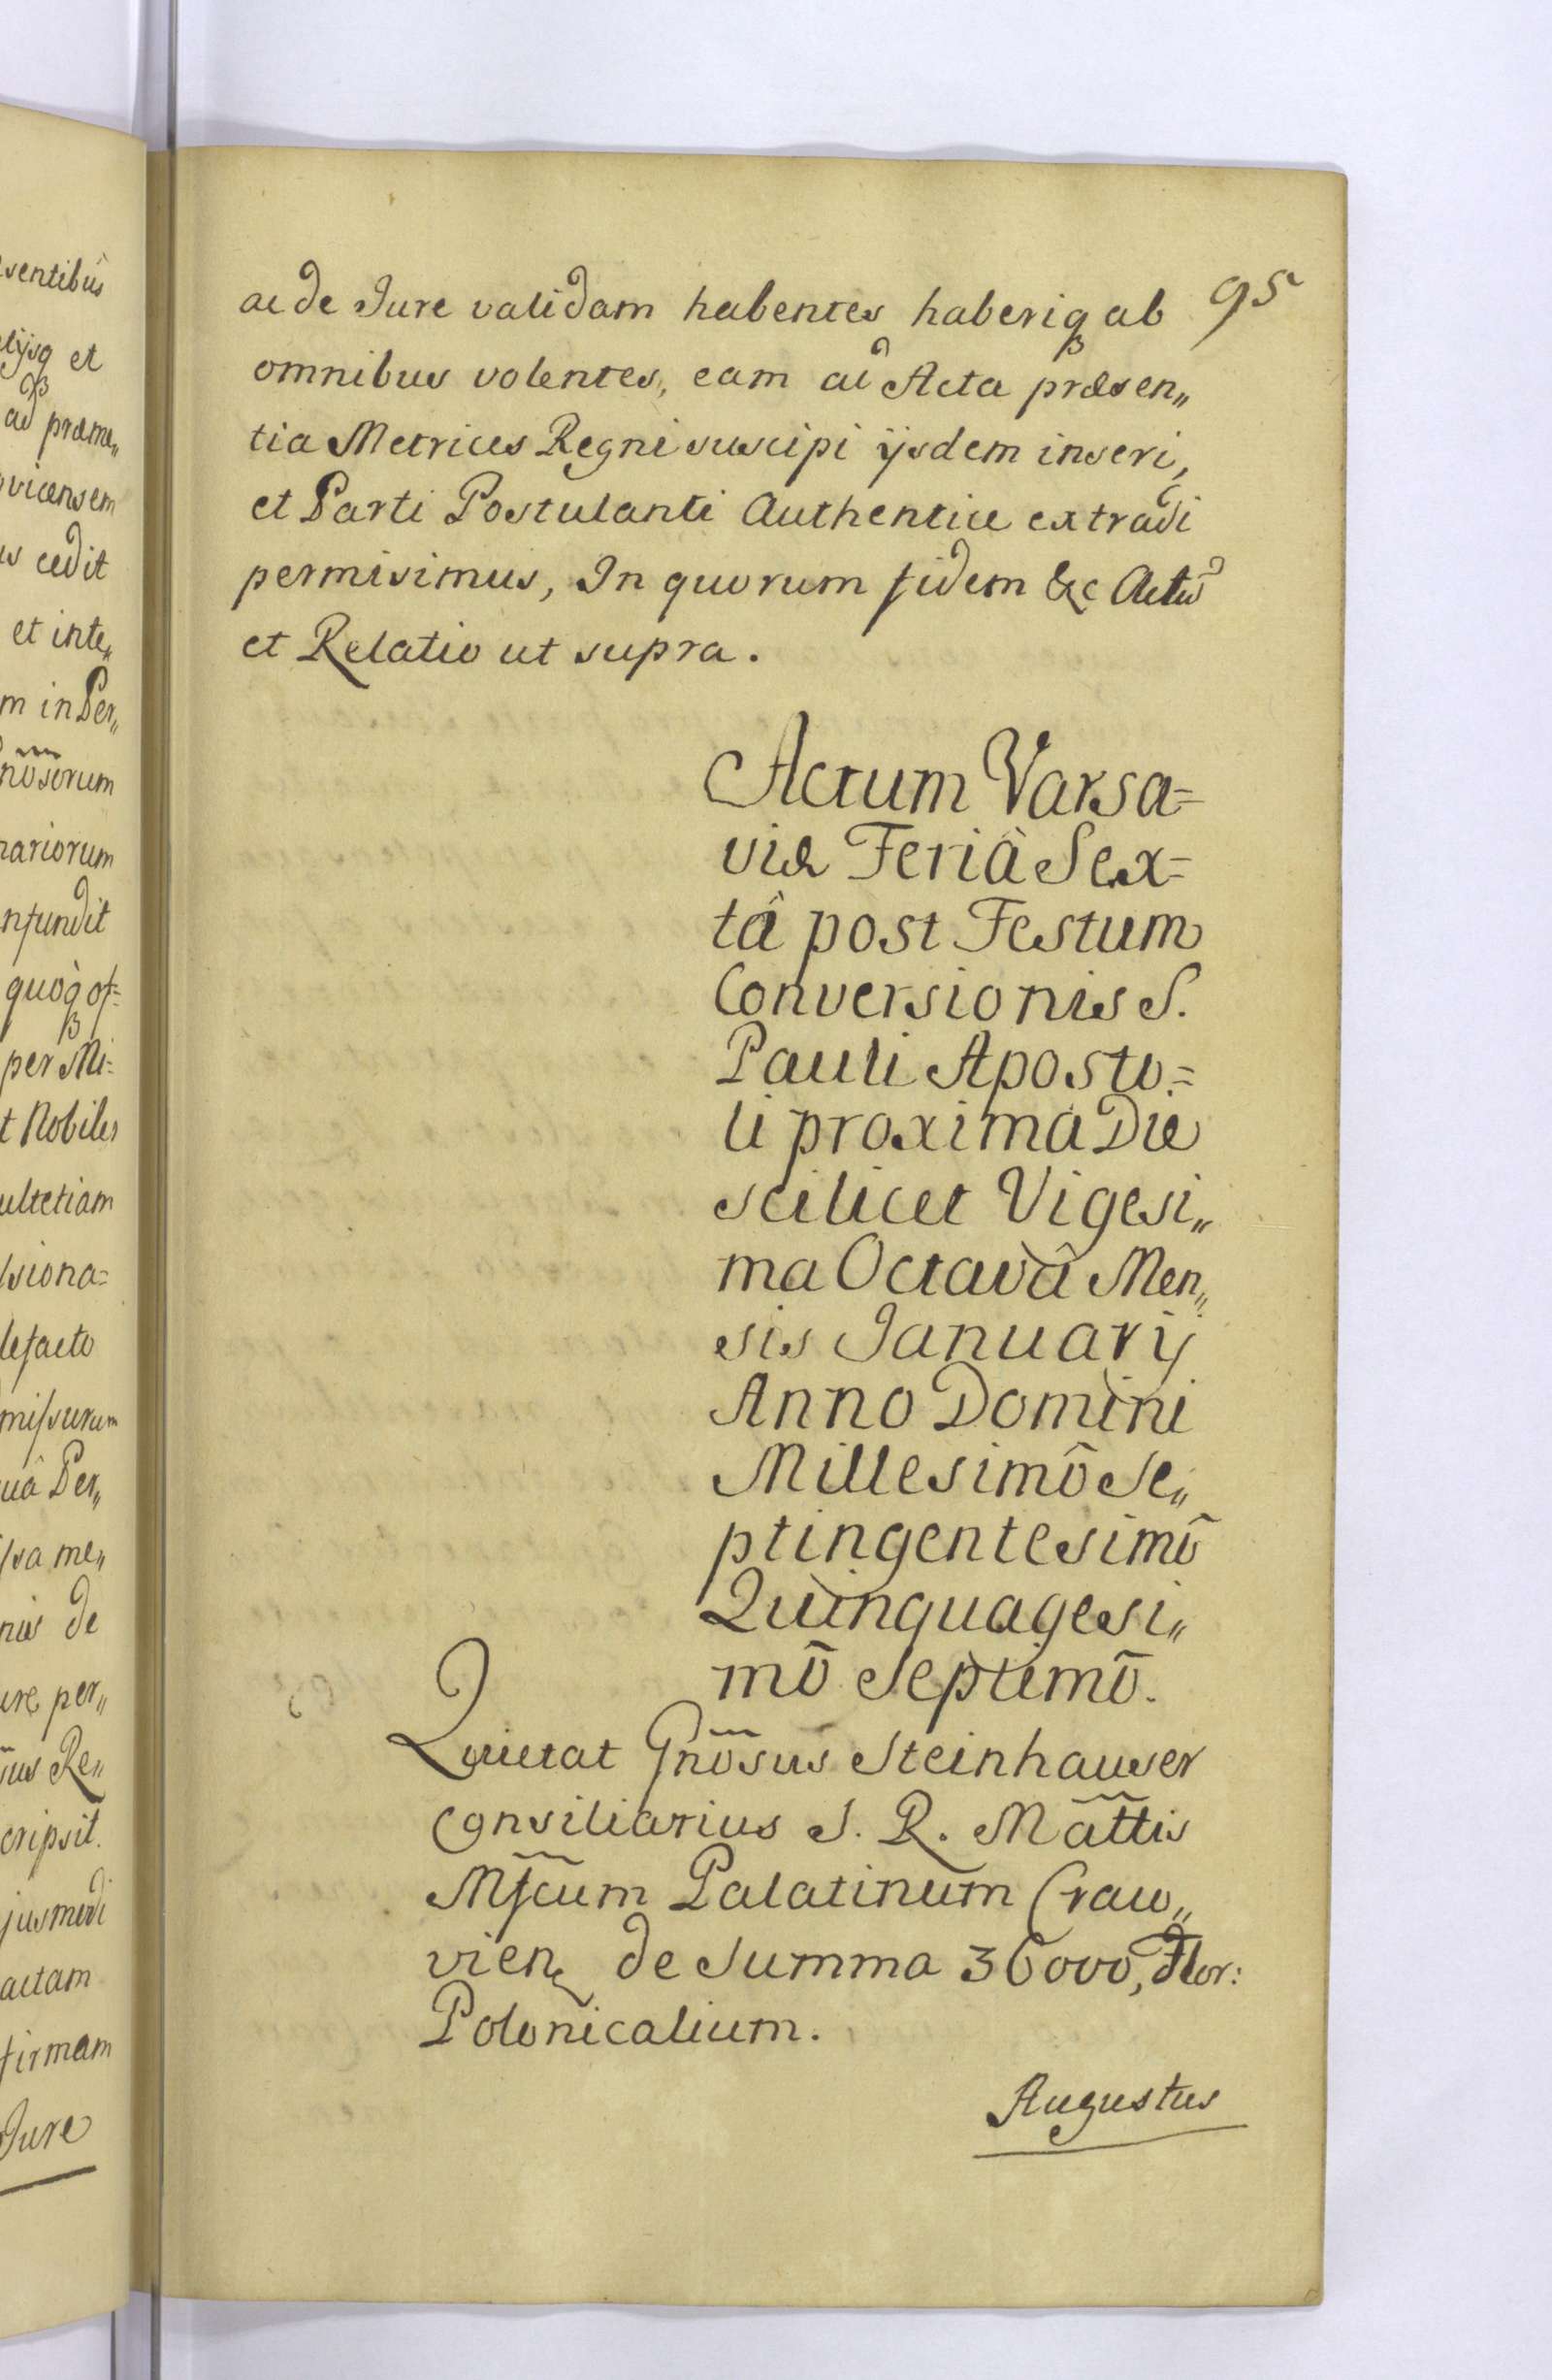 sentibus
lijsq et
ad præme„
ovicensem
us cedit
et inte„
m in Per„
nosorum
nariorum
nfundit
quoq of=
per Mi=
t Nobiles
ultetiam
siona=
lefacto
missurum
uâ Per„
ssa me„
nus de
ure per„
ius Re„
cripsit.
jusmodi
actam
firmam
Jure
ac de Jure validam habentes haberiq ab 95
omnibus volentes, eam ad Acta præsen„
tia Metrices Regni suscipi ijsdem inseri,
et Parti Postulanti Authentice extradi
permisimus, In quorum fidem &c Actu
et Relatio ut supra.
Actum Varsa=
viæ Feriâ Sex=
tâ post Festum
Conversionis S.
Pauli Aposto=
li proxima Die
scilicet Vigesi„
ma Octavâ Men„
sis Januarij
Anno Domini
Millesimô Se„
ptingentesimô
Quinquagesi„
mô Septimô.
Quietat Gnosus Steinhauser
Consiliarius S. R. Mattis
Mfcum Palatinum Craco„
vien de Summa 36000, Flor:
Polonicalium.
Augustus